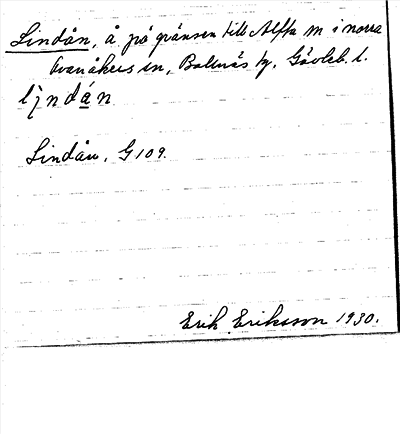 Lindån, å på gränsen till Alfta sn i norra
Ovanåkers sn, Bollnäs tg, Gävleb. l.
lı̨ndán
Lindån, G 109.
Erik Eriksson 1930.